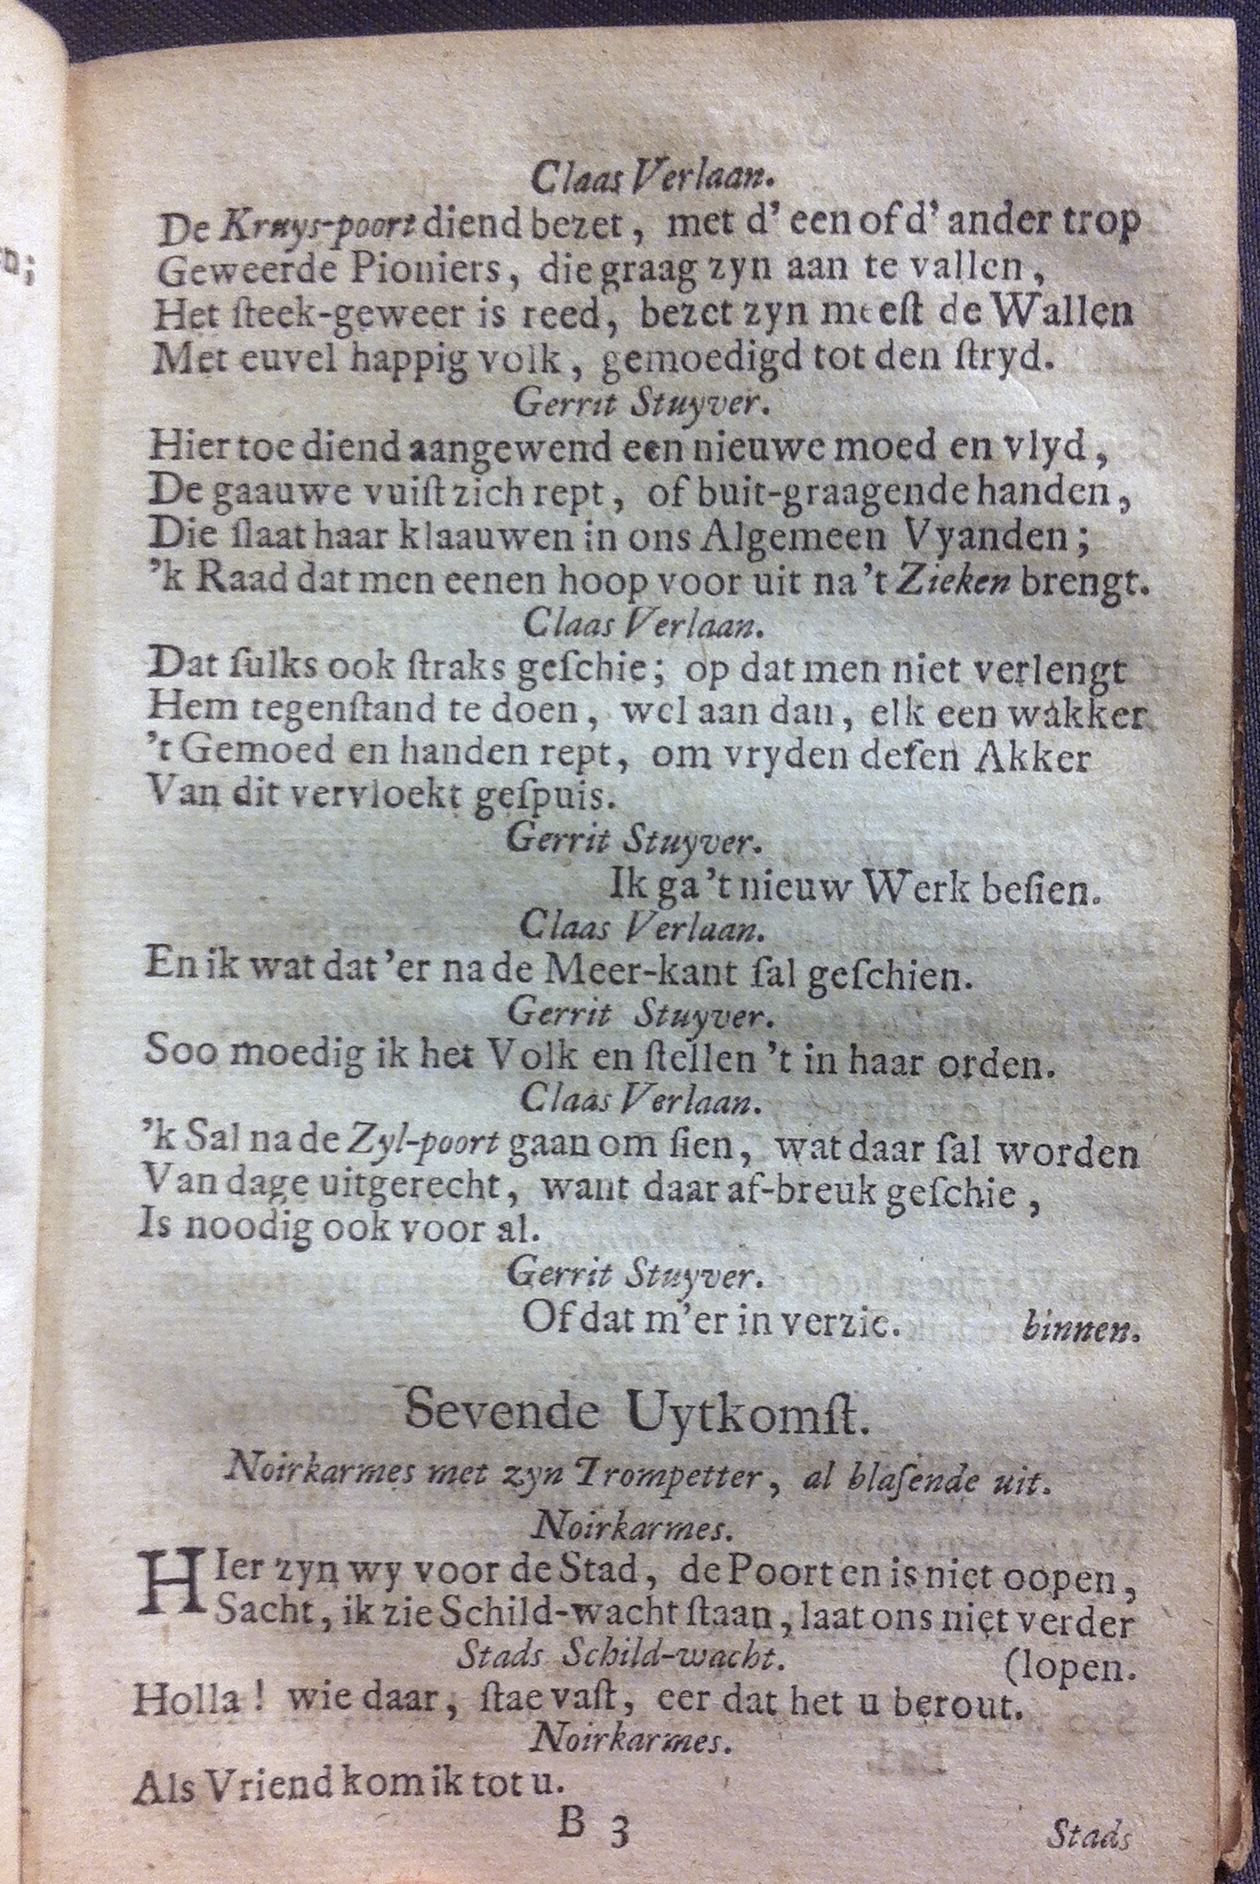 Claas Verlaan.
De Kruys-poort diend bezet, met d' een of d' ander trop
Geweerde Pioniers, die graag zyn aan te vallen,
Het ſteek-geweer is reed, bezet zyn meeſt de Wallen
Met euvel happig volk, gemoedigd tot den ſtryd.
Gerrit Stuyver.
Hier toe diend aangewend een nieuwe moed en vlyd,
De gaauwe vuiſt zich rept, of buit-graagende handen,
Die ſlaat haar klaauwen in ons Algemeen Vyanden;
'k Raad dat men eenen hoop voor uit na 't Zieken brengt.
Claas Verlaan.
Dat ſulks ook ſtraks geſchie; op dat men niet verlengt
Hem tegenſtand te doen, wel aan dan, elk een wakker
't Gemoed en handen rept, om vryden deſen Akker
Van dit vervloekt geſpuis.
Gerrit Stuyver.
Ik ga 't nieuw Werk beſien.
Claas Verlaan.
En ik wat dat 'er na de Meer-kant ſal geſchien.
Gerrit Stuyver.
Soo moedig ik het Volk en ſtellen 't in haar orden.
Claas Verlaan.
'k Sal na de Zyl-poort gaan om ſien, wat daar ſal worden
Van dage uitgerecht, want daar af-breuk geſchie,
Is noodig ook voor al.
Gerrit Stuyver.
Of dat m'er in verzie. binnen.
Sevende Uytkomſt.
Noirkarmes met zyn Trompetter, al blaſende uit.
Noirkarmes.
HIer zyn wy voor de Stad, de Poort en is niet oopen,
Sacht, ik zie Schild-wacht ſtaan, laat ons niet verder
Stads Schild-wacht. (lopen.
Holla! wie daar, ſtae vaſt, eer dat het u berout.
Noirkarmes.
Als Vriend kom ik tot u.
B 3 Stads